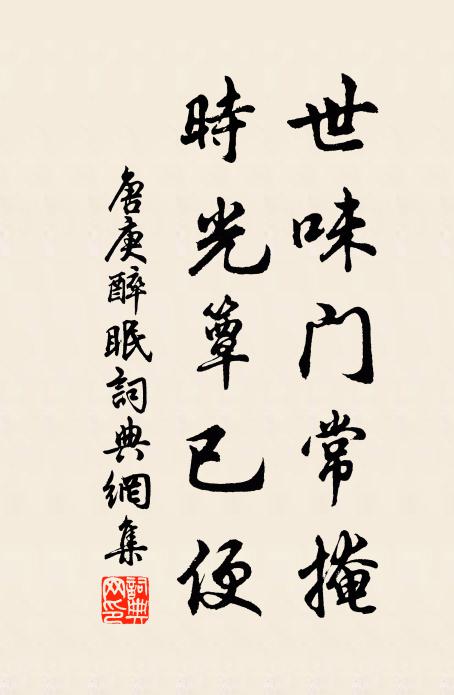 世味門常掩
時光簟已便
唐庚醉眠詞典網集
詞典網印